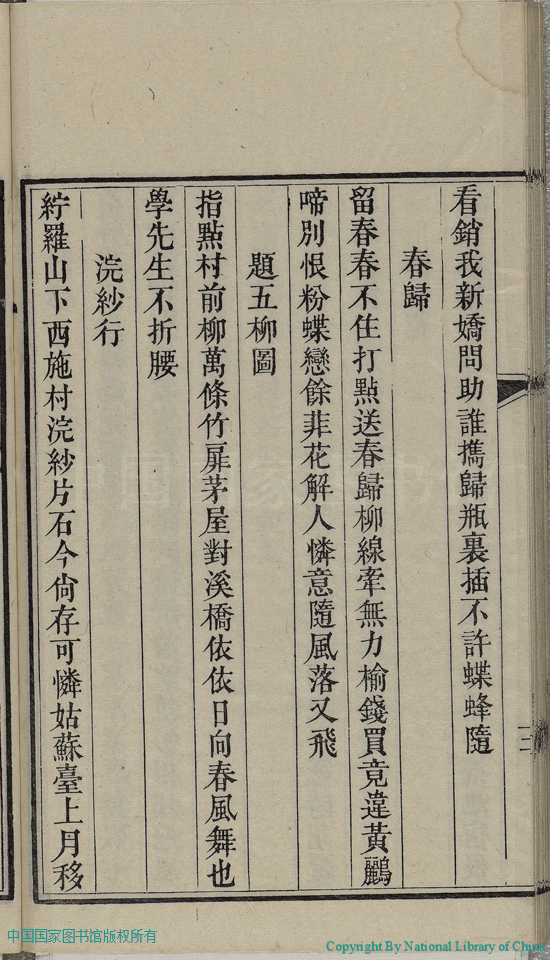 看銷我新嬌問助誰攜歸瓶裏插不許蝶蜂隨
春歸
留春春不住打點送春歸柳線牽無力榆錢買竟違黃鸝
啼別恨粉蝶戀餘菲花解人憐意隨風落又飛
題五柳圖
指點村前柳萬條竹扉茅屋對溪橋依依日向春風舞也
學先生不折腰
浣紗行
紵羅山下西施村浣紗片石今尙存可憐姑蘇臺上月移
中国国家图书馆版权所有
Copyright By National Library of China